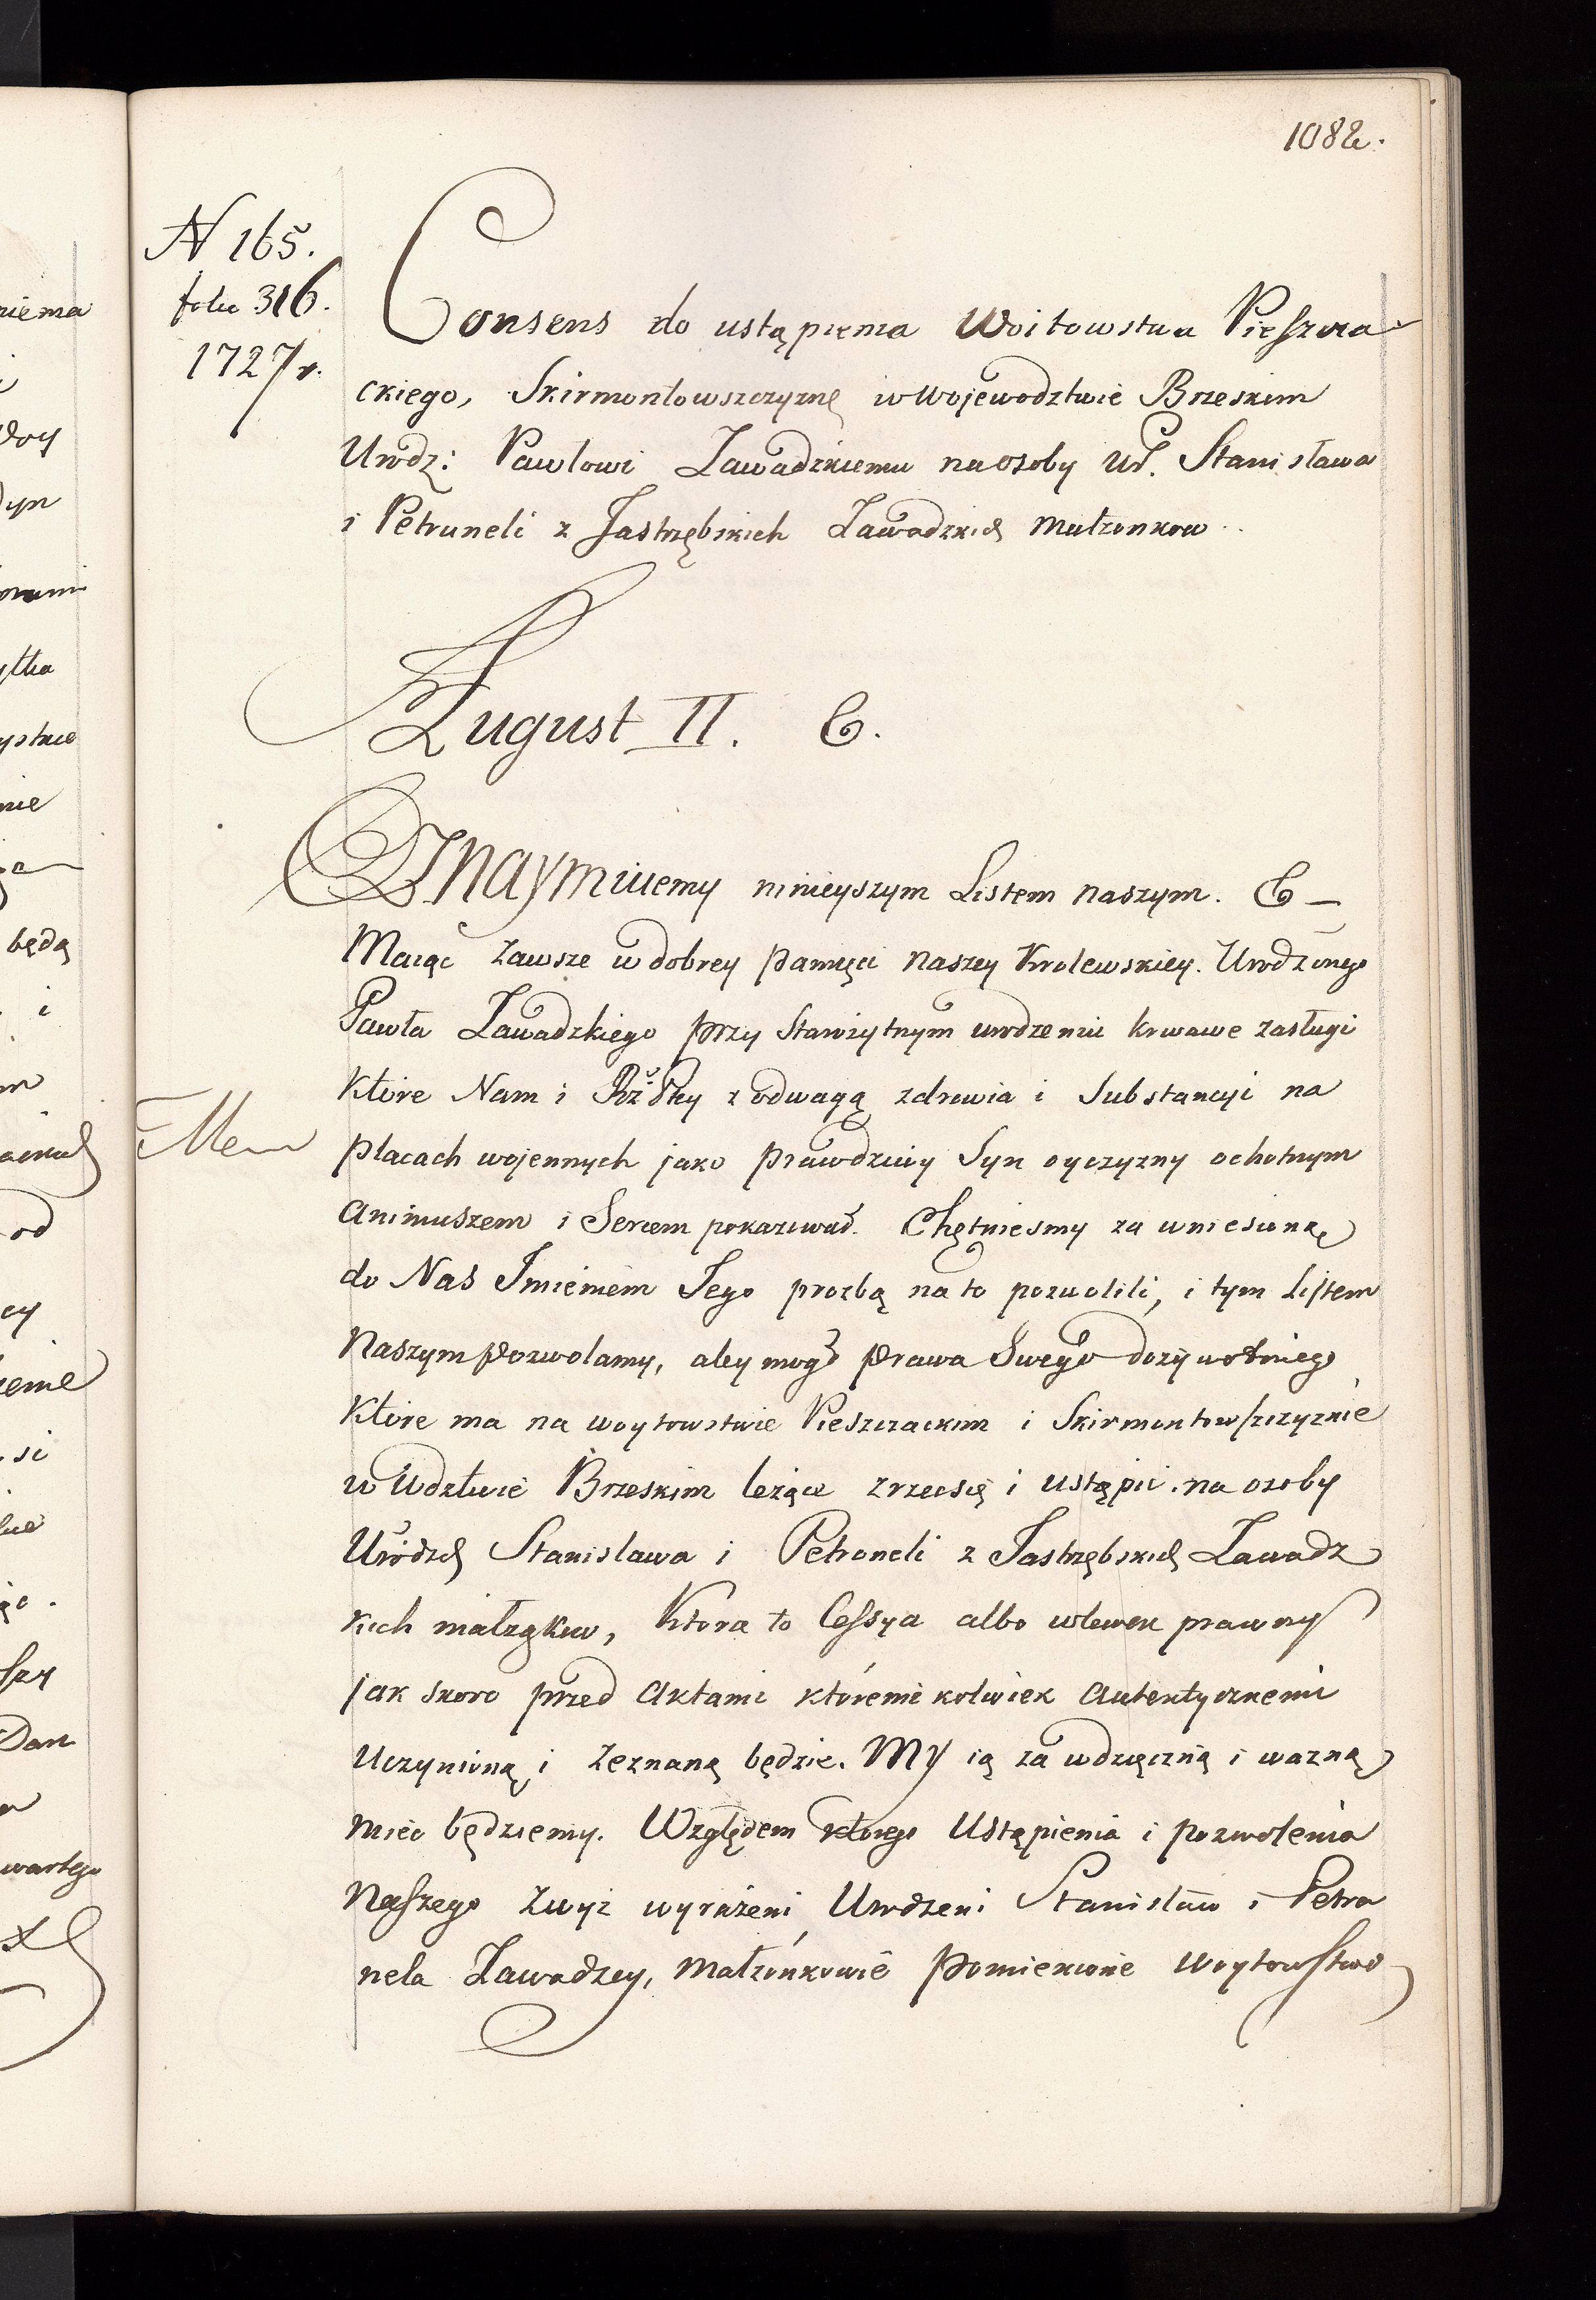 1082.
N 165.
folu 316.
1727 r.
Consens do ustąpienia Woitowstwa Pieszcza
ckiego, Skirmontowszczyznę w Wojewodztwie Brzeskim
Urodz: Pawłowi Zawadzkiemu na osoby Ur. Stanisława
i Petruneli z Jastrzębskich Zawadzkich Małzonkow
August II. &.
Oznaymuiemy ninieyszym Listem naszym. & —
Maiąc zawsze w dobrey pamięci naszey Krolewskiey. Urodzonego
Pawła Zawadzkiego przy Starożytnym urodzeniu krwawe zasługi
Które Nam i Rz.Pltey z odwagą zdrowia i Substancyi na
placach wojennych jako prawdziwy Syn oyczyzny ochotnym
animuszem i Sercem pokazował. Chętniesmy za wniesioną
do Nas Imieniem Jego prozbą na to pozwolili, i tym Listem
Naszym pozwolamy, aby mogł prawa Swego dożywotniego
Które ma na woytowstwie Pieszczackim i Skirmontowszczyznie
w Wdztwie Brzeskim leżące zrzec się i ustąpić na osoby
Urodzch Stanislawa i Petroneli z Jastrzębskich Zawadz
kich małząkow, Która to Cessya albo wlewek prawny
jak skoro przed aktami któremikolwiek autentycznemi
Uczynioną i zeznaną będzie. My ią za wdzięczną i wazną
mieć będziemy. Względem którego Ustąpienia i pozwolenia
Naszego zwyż wyrażeni Urodzeni Stanisław i Petro
nela Zawadzcy, Małżónkowie pomienione Woytowstwo